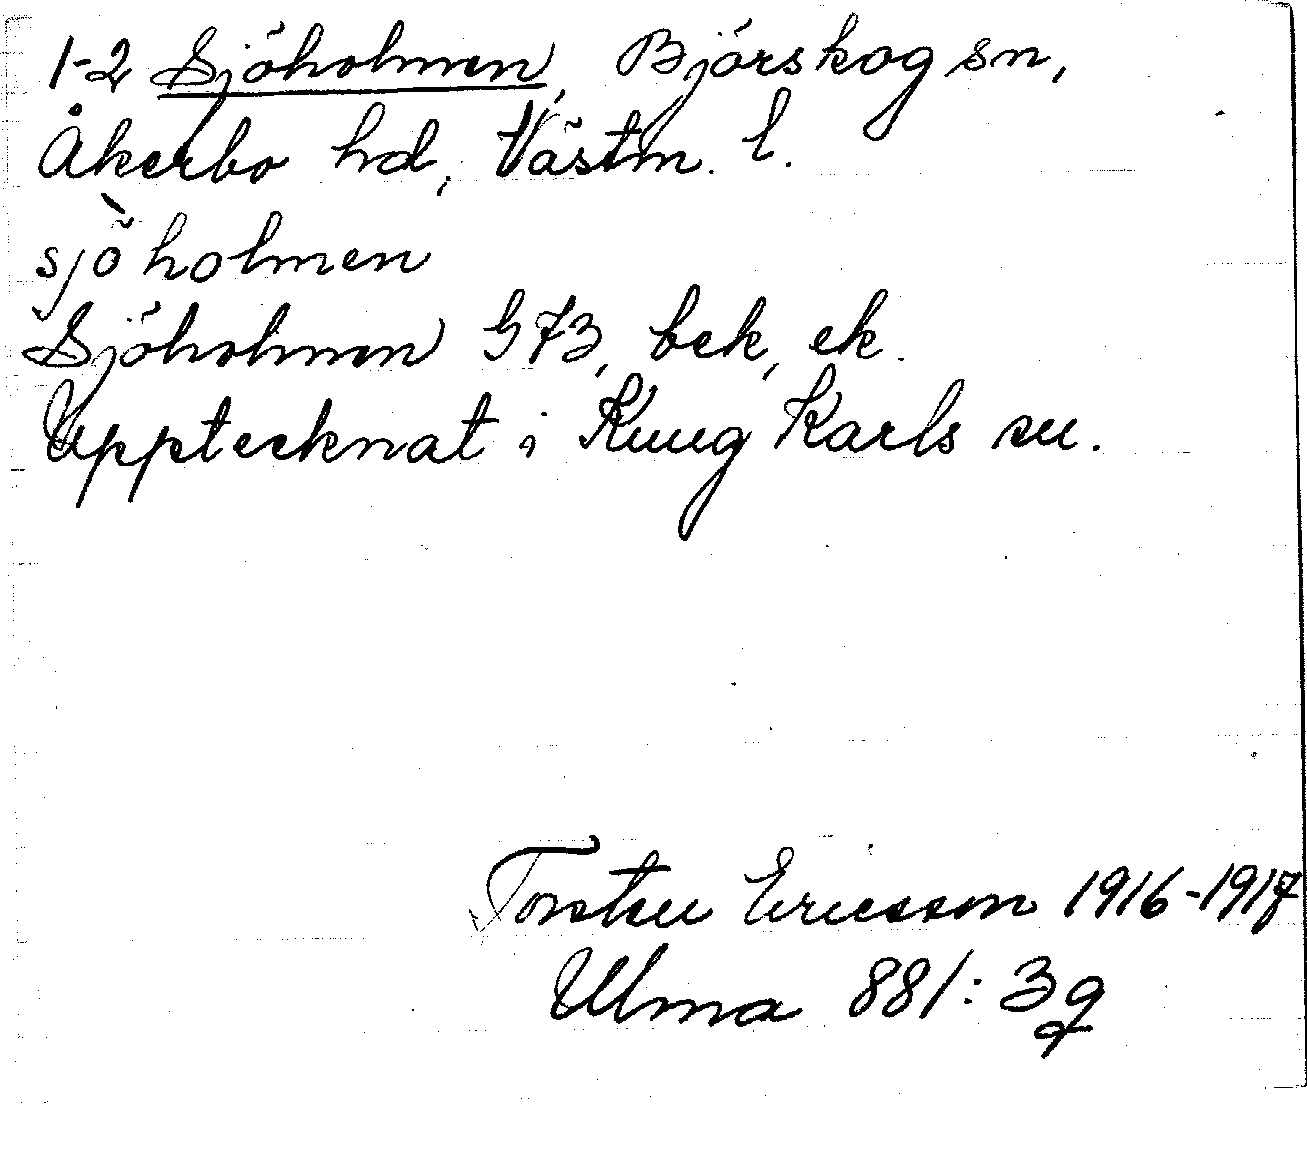 1-2 Sjöholmen, Björskog sn,
Åkerbo hd, Västm. l.
sjö̀holmen
Sjöholmen G73, bek, ek.
Upptecknat i Kung Karls sn.
Torsten Ericsson 1916-1917
Ulma 881: 3g